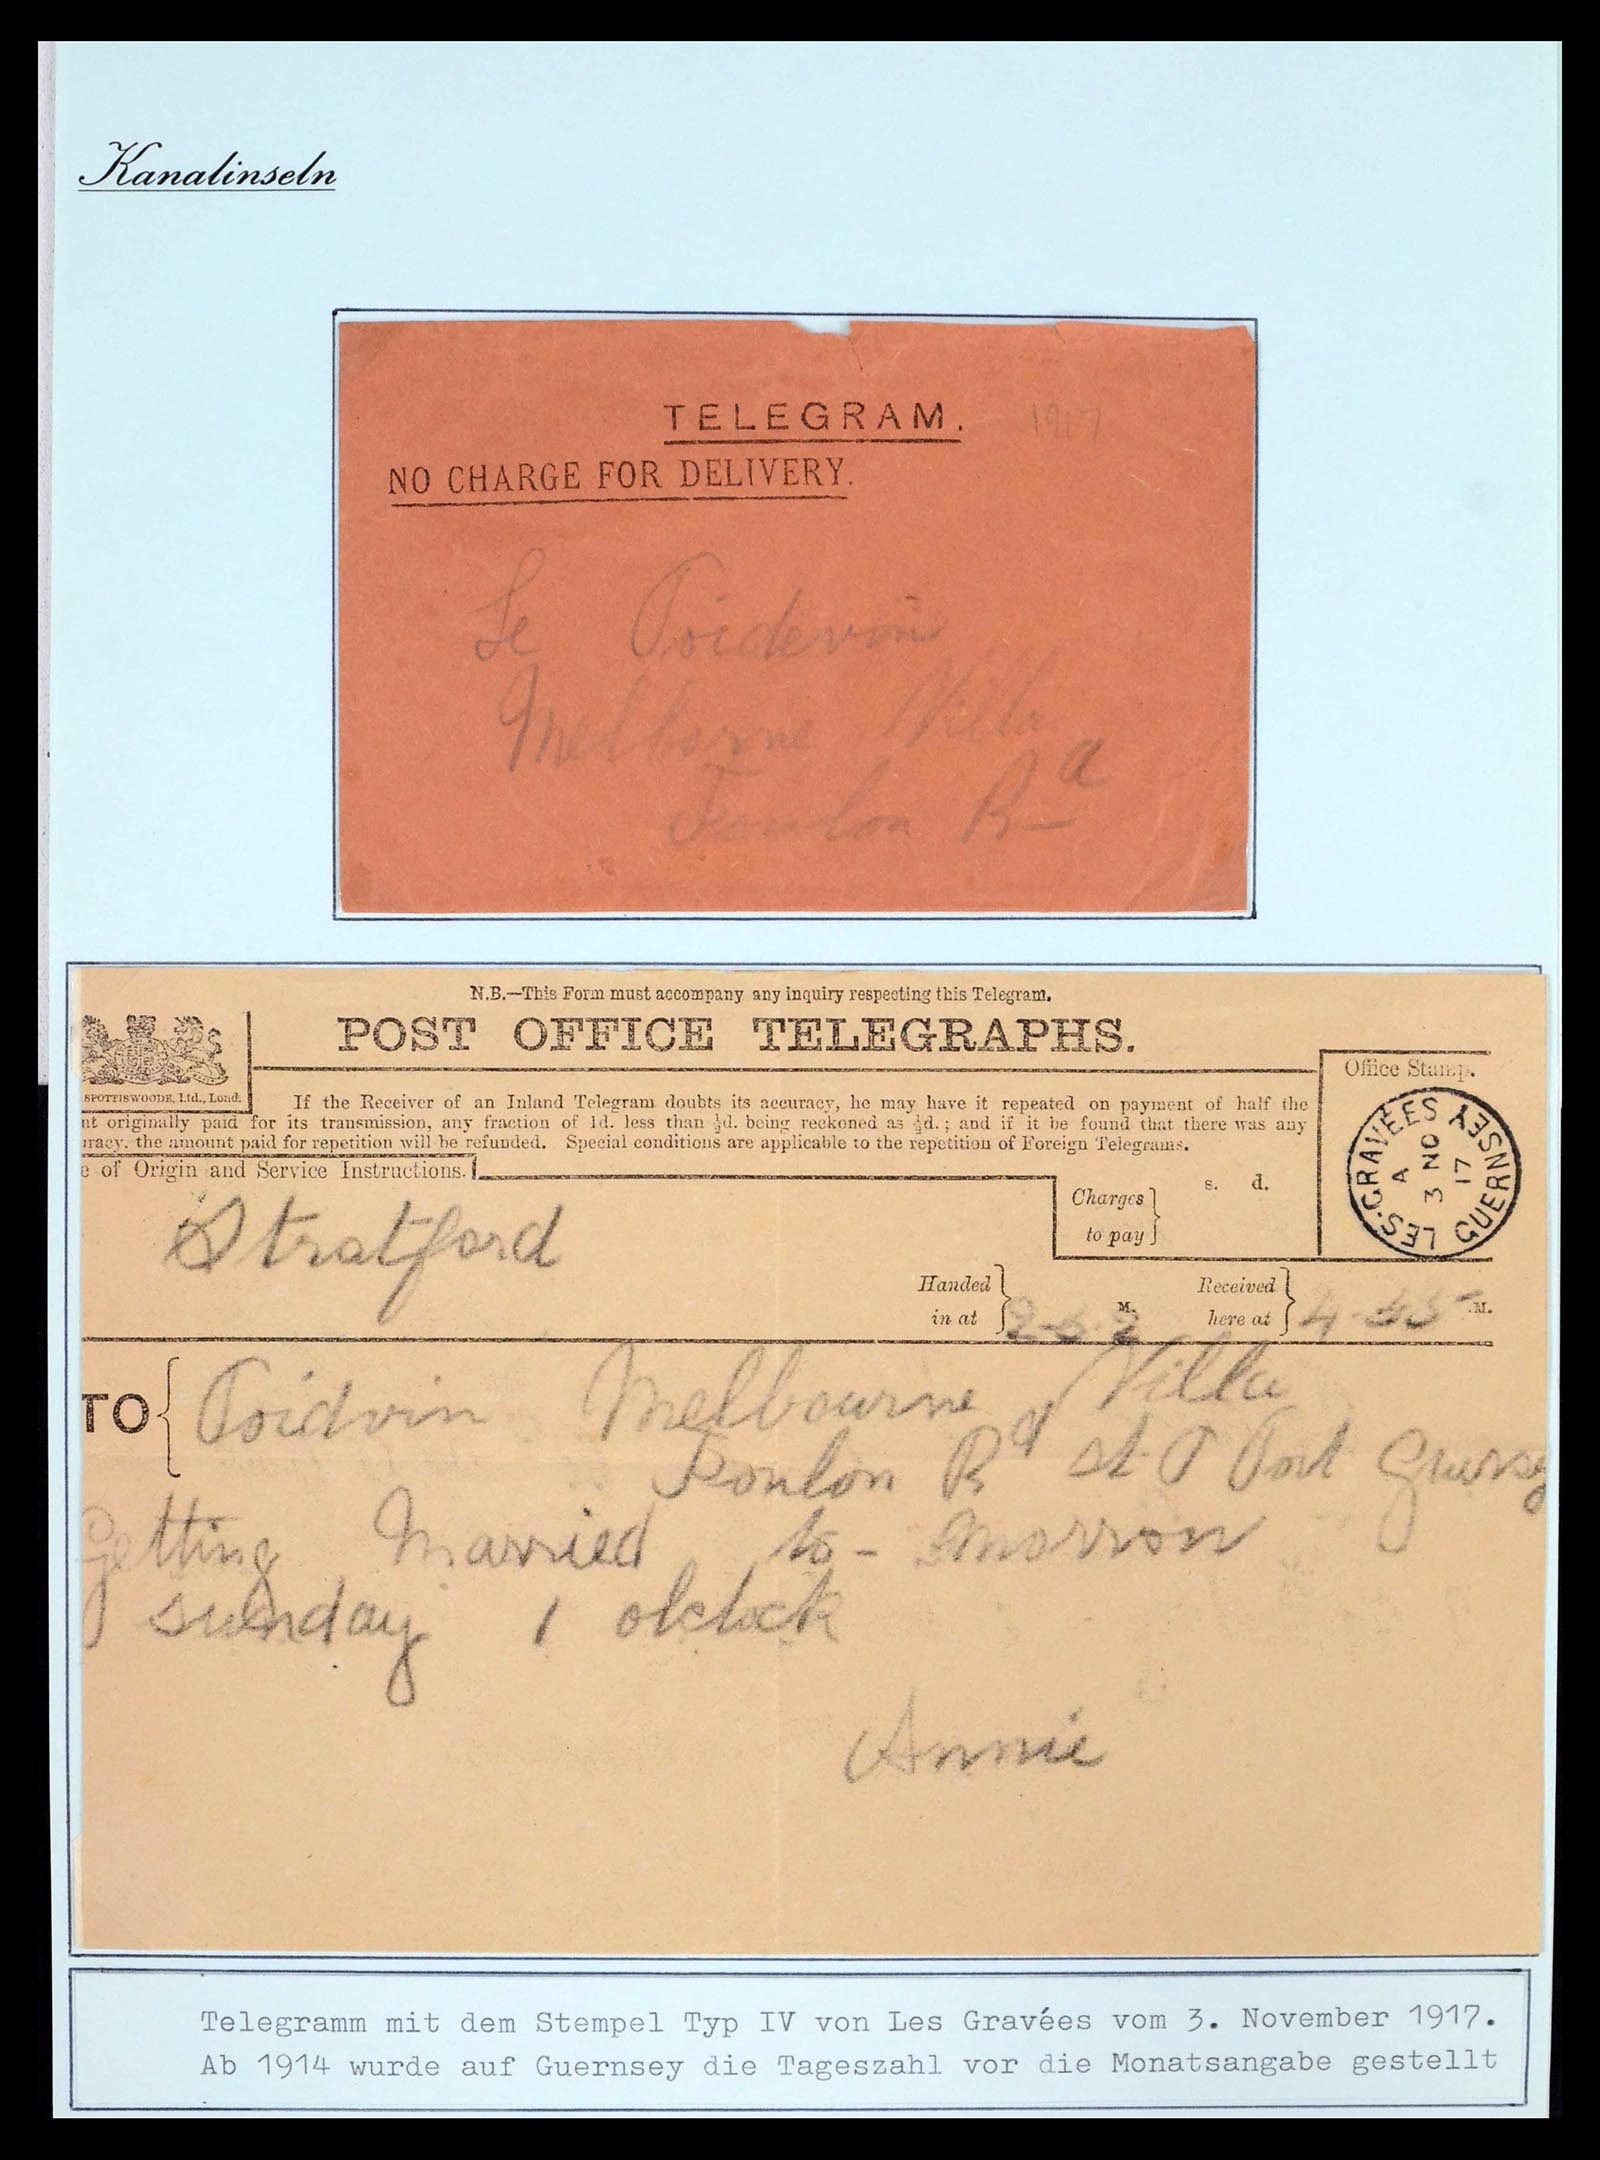 Kanalinseln
TELEGRAM. 1917
NO CHARGE FOR DELIVERY.
Le Poidevin
Melborne Villa
Foulon Rd
N.B.—This Form must accompany any inquiry respecting this Telegram.
POST OFFICE TELEGRAPHS.
SPOTTISWOODE, Ltd., Lond.
If the Receiver of an Inland Telegram doubts its accuracy, he may have it repeated on payment of half the
nt originally paid for its transmission, any fraction of 1d. less than ½d. being reckoned as ½d.; and if it be found that there was any
uracy, the amount paid for repetition will be refunded. Special conditions are applicable to the repetition of Foreign Telegrams.
e of Origin and Service Instructions.
Office Stamp.
LES·GRAVÉES GUERNSEY
A
3 NO
17
Stratford
Charges to pay } s. d.
Handed in at } M.
Received here at } 4-55 .M.
TO { Poidvin Melbourne Villa
Foulon Rd St P Port
Getting Married to-morrow
sunday 1 oklock
Annie
Telegramm mit dem Stempel Typ IV von Les Gravées vom 3. November 1917.
Ab 1914 wurde auf Guernsey die Tageszahl vor die Monatsangabe gestellt